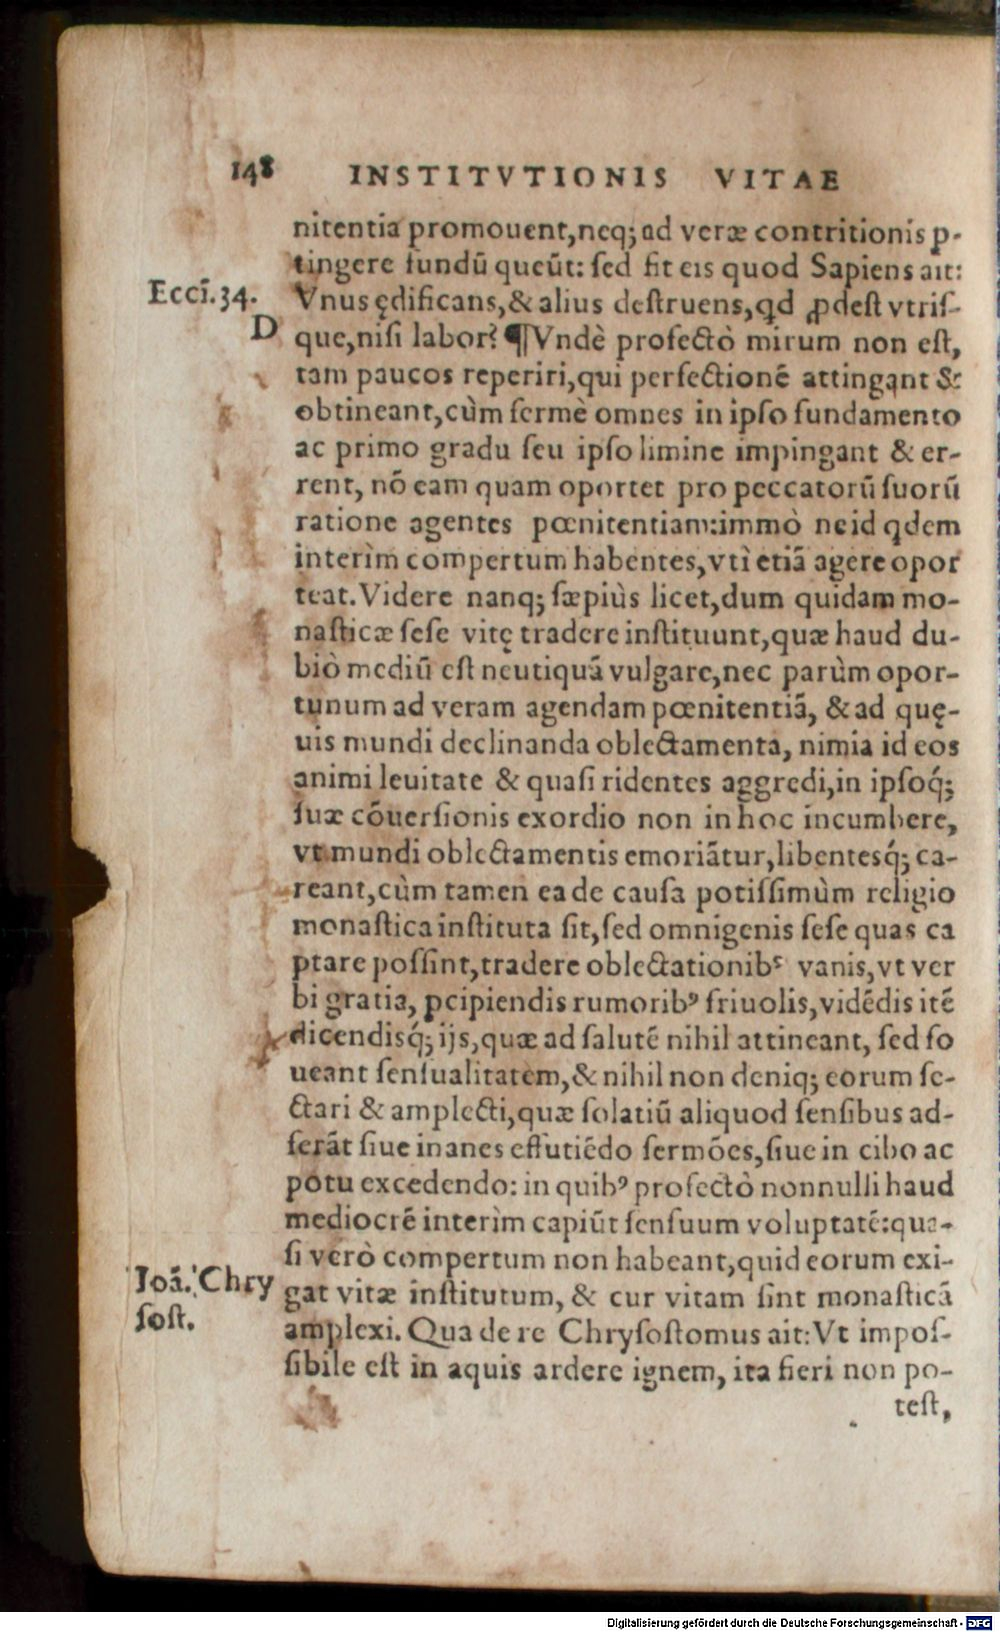 148 INSTITVTIONIS VITAE
nitentia promouent,neq; ad veræ contritionis ꝑ-
tingere fundū queūt: ſed fit eis quod Sapiens ait:
Eccĩ.34. Vnus ędificans,& alius deſtruens,qd ꝓdeſt vtriſ-
D que,niſi labor? ¶ Vndè profectò mirum non eſt,
tam paucos reperiri,qui perfectionē attingant &
obtineant,cùm fermè omnes in ipſo fundamento
ac primo gradu ſeu ipſo limine impingant & er-
rent, nō eam quam oportet pro peccatorū ſuorū
ratione agentes pœnitentiam:immò ne id qdem
interìm compertum habentes,vti etiā agere opor
teat.Videre nanq; ſæpiùs licet,dum quidam mo-
naſticæ ſeſe vitę tradere inſtituunt,quæ haud du-
biò mediū eſt neutiquā vulgare,nec parùm opor-
tunum ad veram agendam pœnitentiā, & ad quę-
uis mundi declinanda oblectamenta, nimia id eos
animi leuitate & quaſi ridentes aggredi,in ipſoq́;
ſuæ cōuerſionis exordio non in hoc incumbere,
vt mundi oblectamentis emoriātur,libentesq́; ca-
reant,cùm tamen ea de cauſa potiſſimùm religio
monaſtica inſtituta ſit,ſed omnigenis ſeſe quas ca
ptare poſſint,tradere oblectationibꝰ vanis,vt ver
bi gratia, pcipiendis rumoribꝰ friuolis,vidēdis itē
dicendisq́; ijs,quæ ad ſalutē nihil attineant, ſed fo
ueant ſenſualitatem,& nihil non deniq; eorum ſe-
ctari & amplecti,quæ ſolatiū aliquod ſenſibus ad-
ferāt ſiue inanes effutiēdo ſermōes,ſiue in cibo ac
potu excedendo: in quibꝰ profectò nonnulli haud
mediocrē interìm capiūt ſenſuum voluptatē:qua-
ſi verò compertum non habeant,quid eorum exi-
Joā. Chry gat vitæ inſtitutum, & cur vitam ſint monaſticā
ſoſt. amplexi. Qua de re Chryſoſtomus ait:Vt impoſ-
ſibile eſt in aquis ardere ignem, ita fieri non po-
teſt,
Digitalisierung gefördert durch die Deutsche Forschungsgemeinschaft - DFG